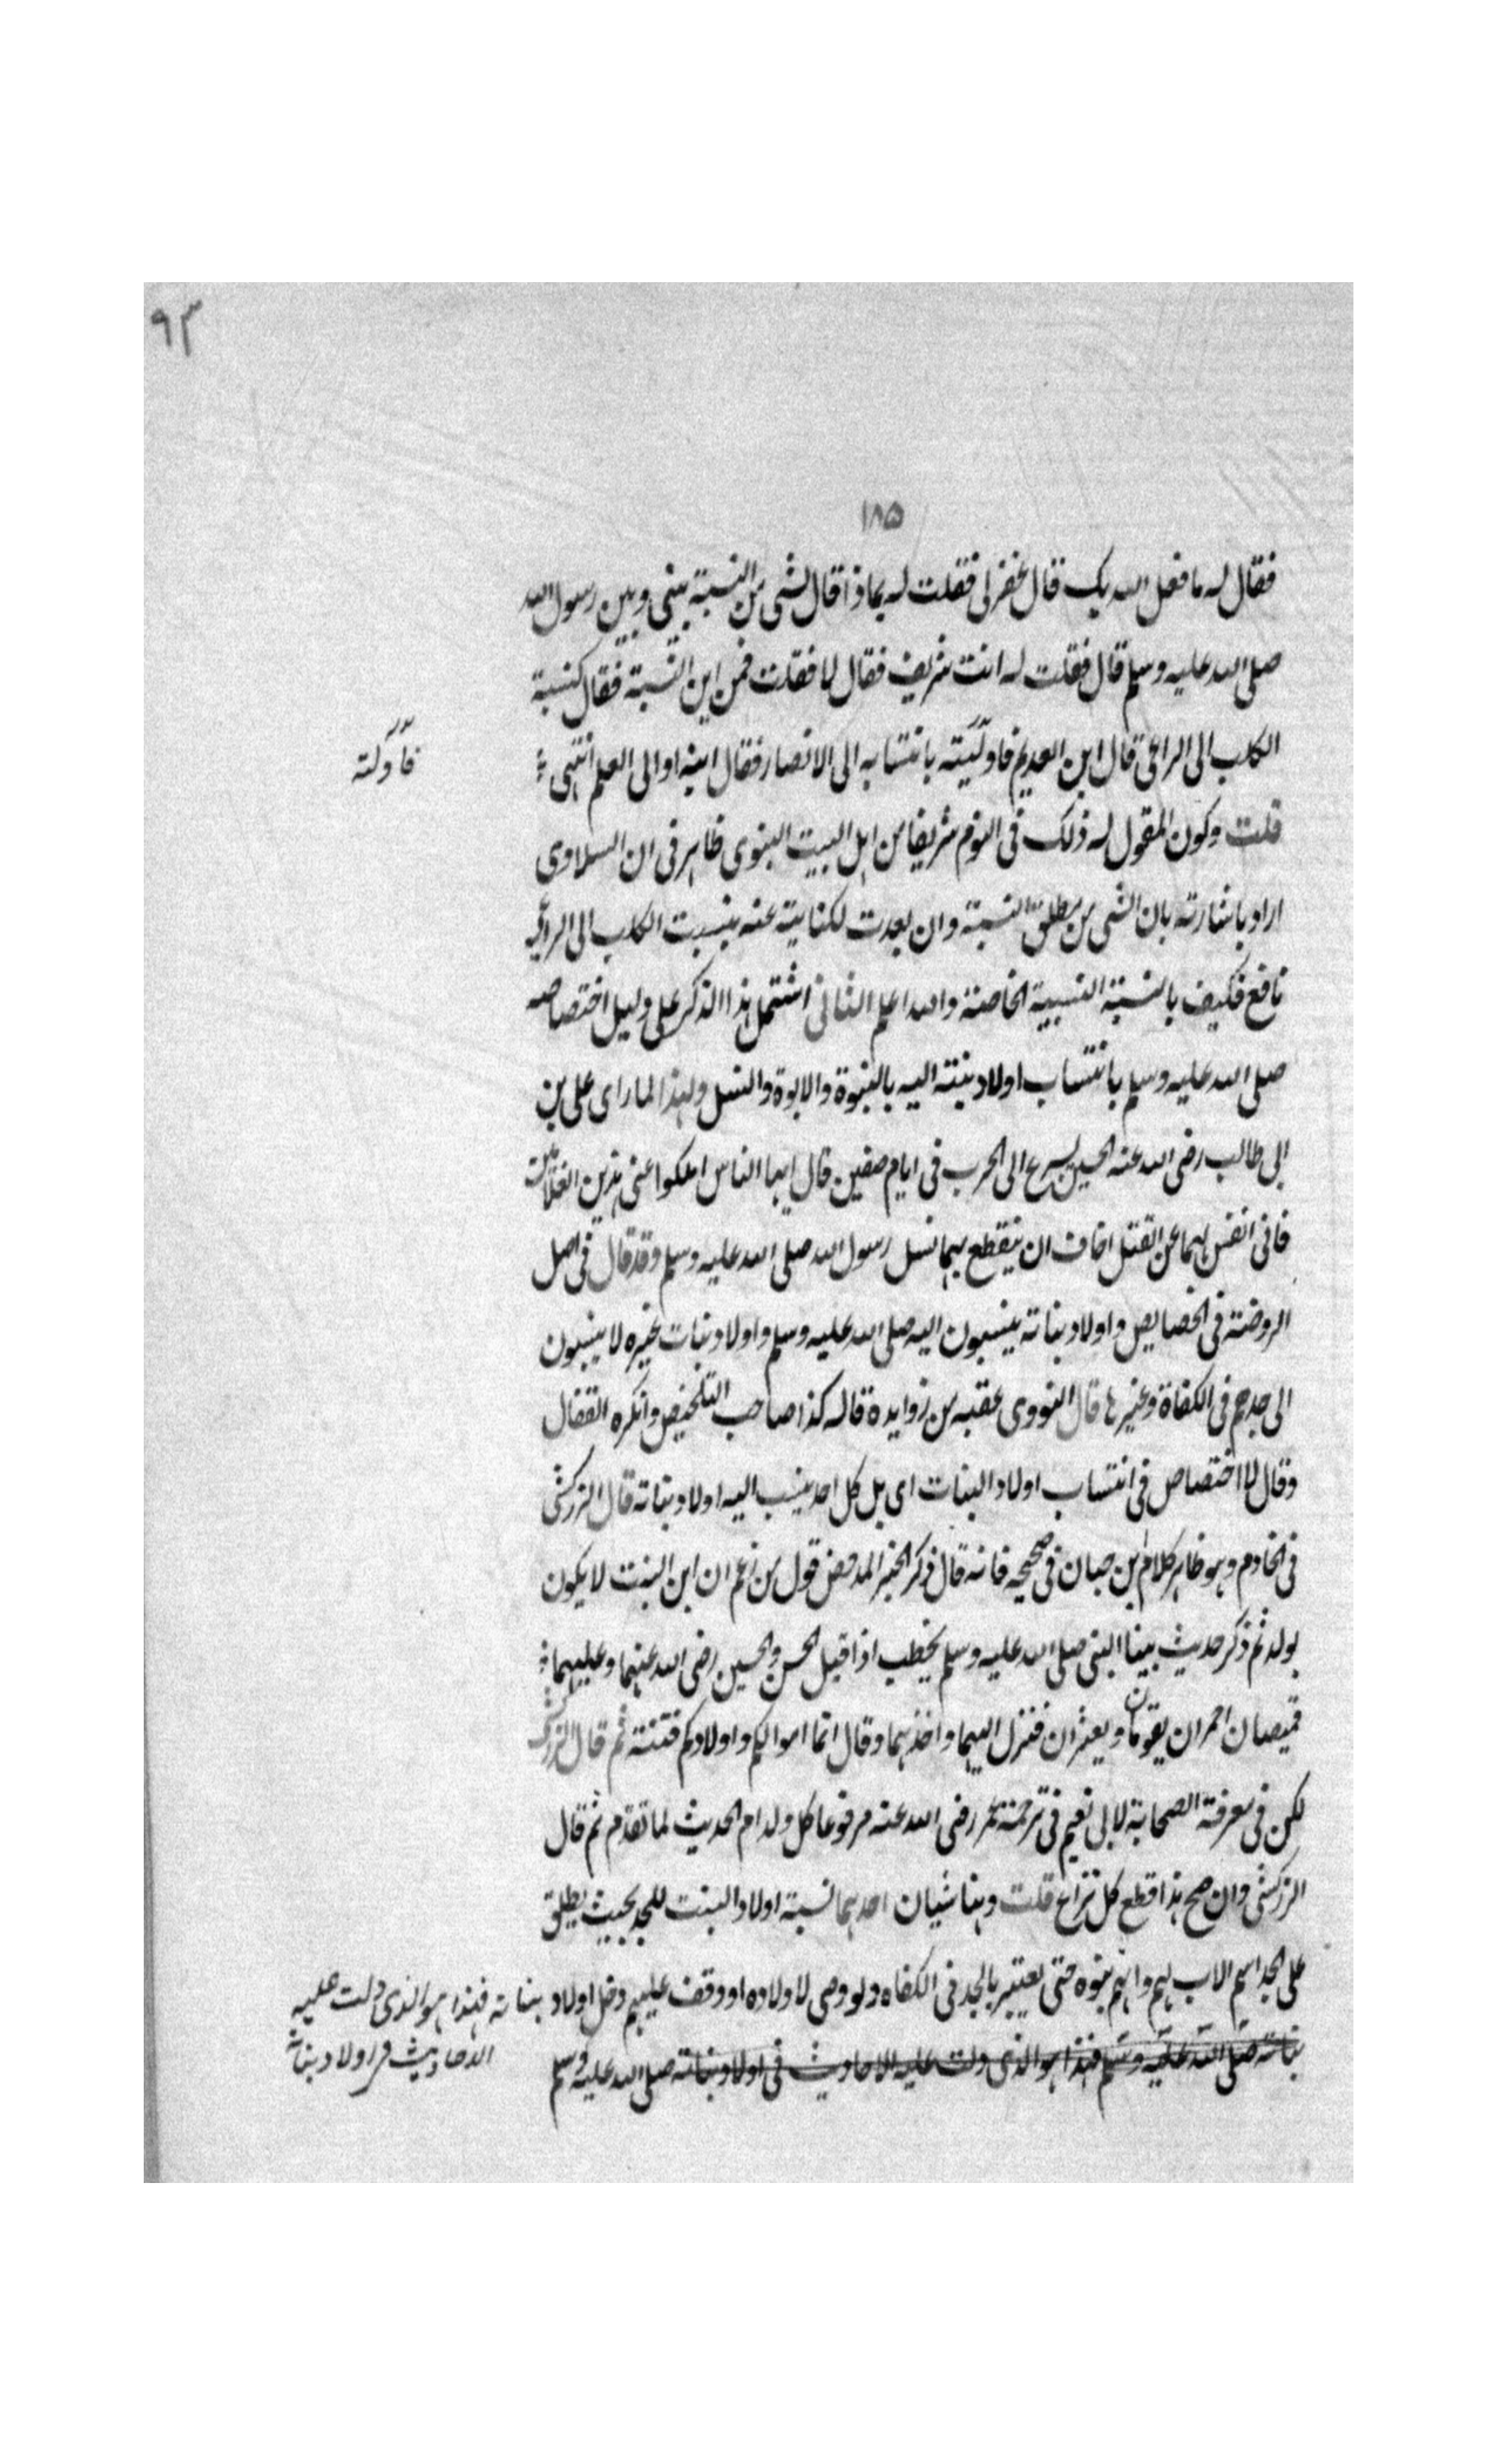 ٩٣
١٨٥
فقال له ما فعل الله بك قال غفر لى فقلت له بماذا قال لشى من النسبة بينى وبين رسول الله
صلى الله عليه وسلم قال فقلت له انت شريف فقال لا فقلت فمن اين النسبة فقال كنسبة
الكلب الى الراعى قال ابن العديم فاولته بانتسابه الى الانصار فقال ابنه او الى العلم انتهى
فآوّلته
قلت وكون المقول له ذلك فى النوم شريفا من اهل البيت النبوى ظاهر فى ان السلاوى
اراد باشارته بان الشى من مطلق النسبة وان بعدت لكنايته عنه بنسبت الكلب الى الراعى
نافع فكيف بالنسبة النسبية الخاصة والله اعلم الثانى اشتمل هذا الذكر على دليل اختصاصه
صلى الله عليه وسلم بانتساب اولاد بنته اليه بالبنوة والابوة والنسل ولهذا لما راى على بن
ابى طالب رضى الله عنه الحسين يسرع الى الحرب فى ايام صفين قال ايها الناس املكوا عنى هذين الغلامين
فانى انفس بهما عن القتل اخاف ان ينقطع بهما نسل رسول الله صلى الله عليه وسلم وقد قال فى اصل
الروضة فى الخصايص واولاد بناته ينسبون اليه صلى الله عليه وسلم واولاد بنات غيره لا ينسبون
الى جدهم فى الكفاة وغيرها قال النووى عقبه من زوايده قاله كذا صاحب التلخيص وانكره القفال
وقال لا اختصاص فى انتساب اولاد البنات اى بل كل احد ينسب اليه اولاد بناته قال الزركشى
فى الخادم وهو ظاهر كلام بن حبان فى صحيحه فانه قال ذكر الخبر المدحض قول من زعم ان ابن البنت لا يكون
بولد ثم ذكر حديث بينا النبى صلى الله عليه وسلم يخطب اذ اقبل الحسن والحسين رضى الله عنهما وعليهما
قميصان احمران يقومان ويعثران فنزل اليهما واخذهما وقال انما اموالكم واولادكم فتنة ثم قال الزركشى
لكن فى معرفة الصحابة لابى نعيم فى ترجمة عمر رضى الله عنه مرفوعا كل ولد ام الحديث لما تقدم ثم قال
الزركشى وان صح هذا قطع كل نزاع قلت وهنا شيان احدهما نسبة اولاد البنت للجد بحيث يطلق
على الجد اسم الاب لهم وانهم بنوه حتى يعتبر بالجد فى الكفاه ولو وصى لاولاده او وقف عليهم دخل اولاد بناته فهذا هو الذى دلت عليه
الاحاديث فى اولاد بناته
بناته صلى الله عليه وسلم فهذا هو الذى دلت عليه الاحاديث فى اولاد بناته صلى الله عليه وسلم